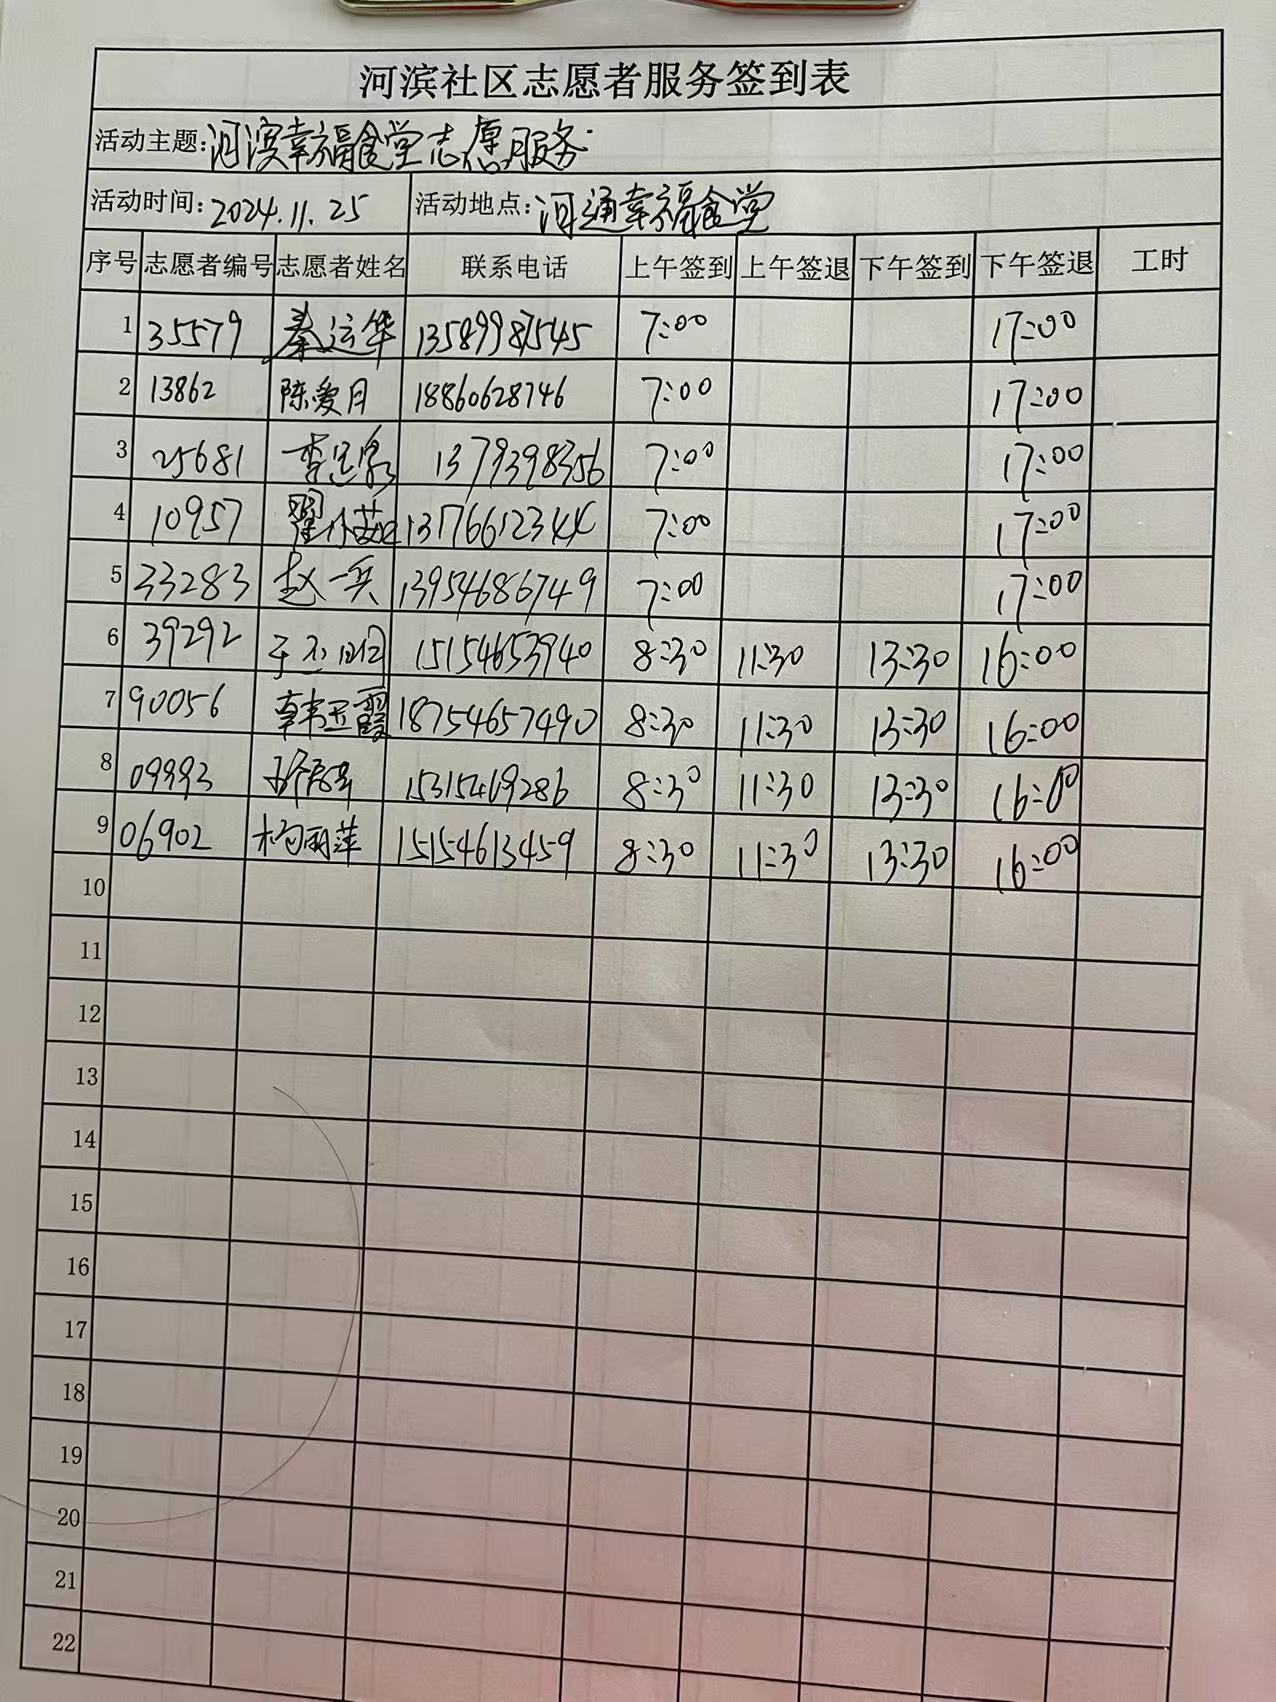 河滨社区志愿者服务签到表
活动主题: 河滨幸福食堂志愿服务.
活动时间: 2024.11.25 活动地点: 河通幸福食堂
序号 志愿者编号 志愿者姓名 联系电话 上午签到 上午签退 下午签到 下午签退 工时
1 35579 秦运华 13589987545 7:00 17:00
2 13862 陈爱月 18860628746 7:00 17:00
3 25681 13793983356 7:00 17:00
4 10957 翟小茹 13176612344 7:00 17:00
5 33283 赵一兵 13954686749 7:00 17:00
6 39292 15154653940 8:30 11:30 13:30 16:00
7 90056 韩玉霞 18754657490 8:30 11:30 13:30 16:00
8 09993 15315469286 8:30 11:30 13:30 16:00
9 06902 杨丽萍 15154613459 8:30 11:30 13:30 16:00
10
11
12
13
14
15
16
17
18
19
20
21
22